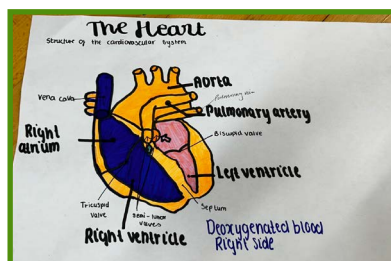 The Heart
Structure of the cardiovascular system
Aorta
Vena cava
Pulmonary artery
Right atrium
Bicuspid valve
Left ventricle
Tricuspid valve
Semi-lunar valves
Septum
Right ventricle
Deoxygenated blood
Right side